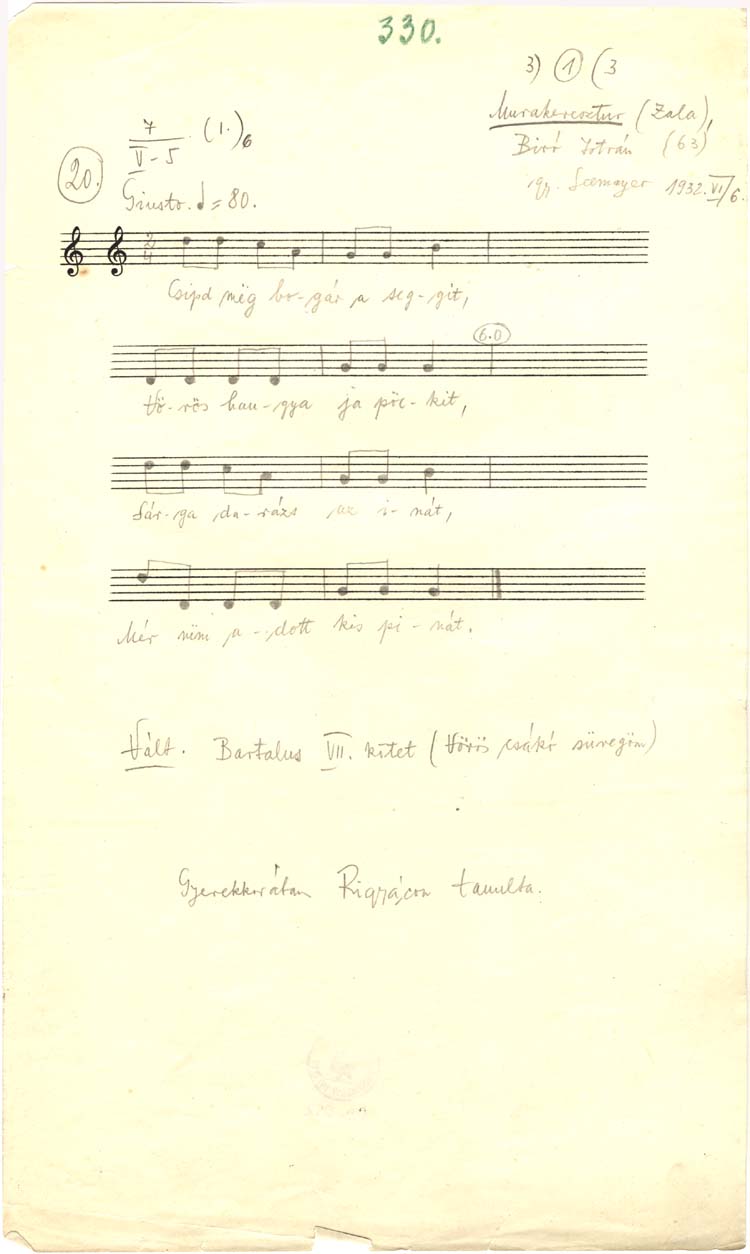 330.
3) 1 (3
Murakeresztur (Zala),
Biró István (63)
gy. Seemayer 1932. VI/6.
7
V-5 (1.)6
20.
Giusto. ♩=80.
2
4
Csipd még bo-gár a seg-git,
6.0
Vö-rös han-gya ja pöc-kit,
Sár-ga da-rázs az i-nát,
Mér nëm a-dott kis pi-nát.
Vált. Bartalus VII. kötet (Vörös csákó süvegöm)
Gyerekkorában Rigyácon tanulta.